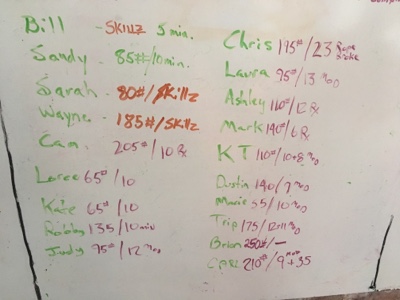 Bill - SKillz 5 min.
Sandy - 85#/10min.
Sarah - 80#/Skillz
Wayne - 185#/Skillz
Cam 205#/10 Rx
Loree 65#/10
Kate 65#/10
Robby 135/10 min
Judy 75#/12 mod
Chris 195#/23 Rope broke
Laura 95#/13 mod
Ashley 110#/12 Rx
Mark 140#/6 Rx
KT 110#/10+8 mod
Dustin 140/7 mod
Marie 55/10 mod
Trip 175/12+11 mod
Brian 250#/-
210#/9+35